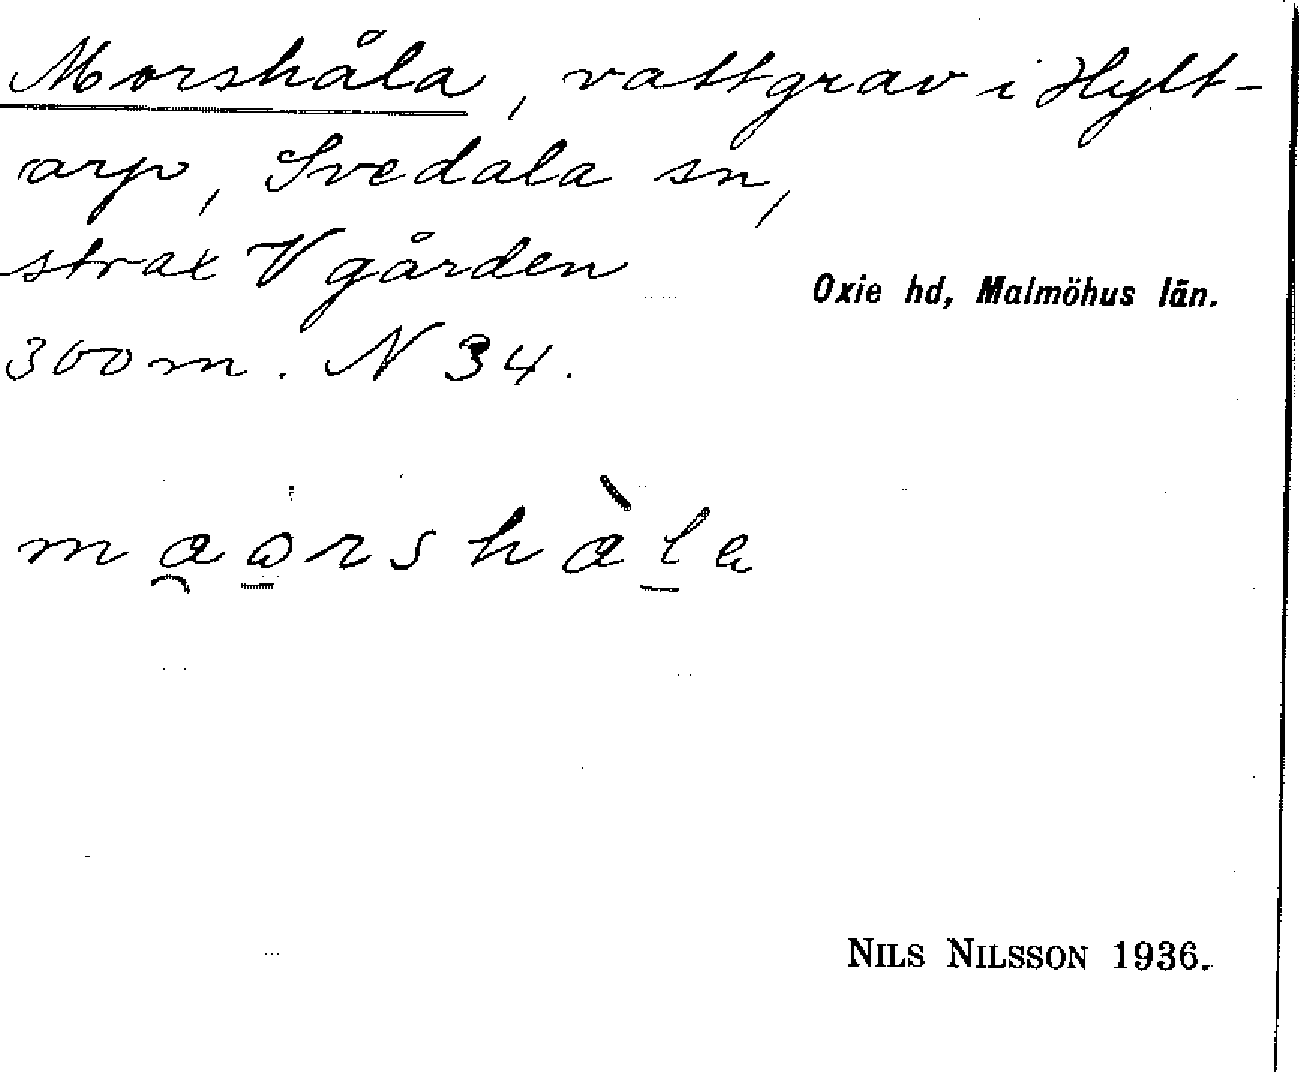 Morshåla, vattgrav i Hylt-
arp, Svedala sn,
strax V gården
Oxie hd, Malmöhus län.
300 m. N 34.
maorshàla
NILS NILSSON 1936.